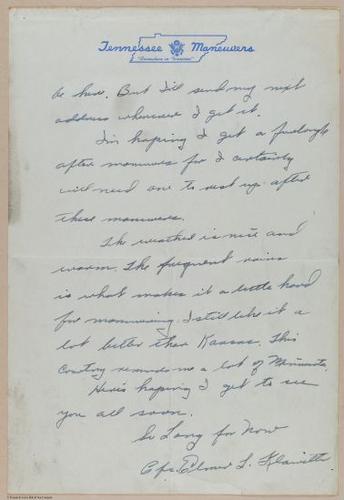 Tennessee Maneuvers
"Somewhere in Tennessee"
be here. But I'll send my next
address whenever I get it.
I'm hoping I get a furlough
after maneuvers for I certainly
will need one to rest up after
these maneuvers.
The weather is nice and
warm. The frequent rains
is what makes it a little hard
for maneuvering. I still like it a
lot better than Kansas. This
Country reminds me a lot of Minnesota.
Here's hoping I get to see
you all soon.
So Long for Now
Cpl. Elmer L.